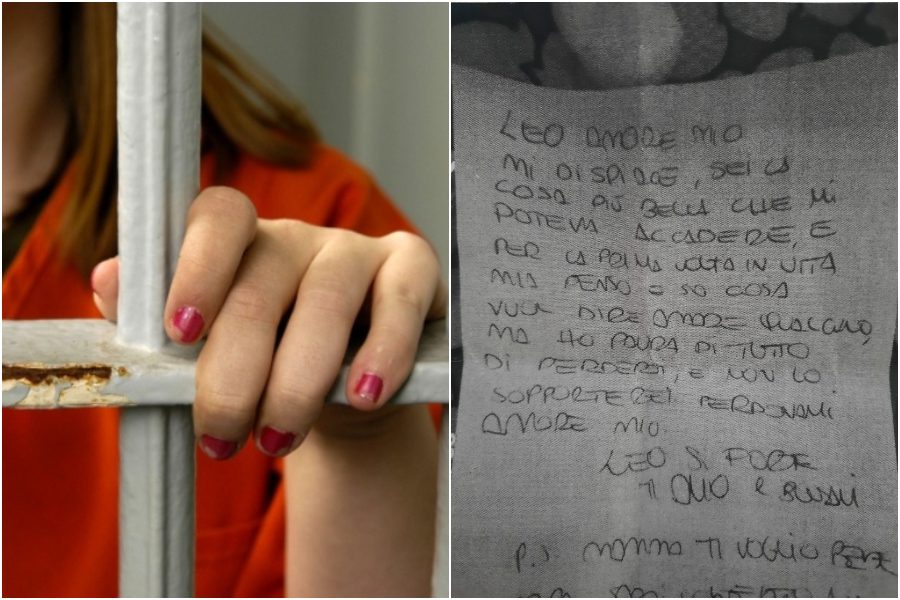 LEO AMORE MIO
MI DISPIACE, SEI LA
COSA PIÙ BELLA CHE MI
POTEVA ACCADERE, E
PER LA PRIMA VOLTA IN VITA
MIA PENSO E SO COSA
VUOL DIRE AMARE QUALCUNO,
MA HO PAURA DI TUTTO
DI PERDERTI, E NON LO
SOPPORTEREI PERDONAMI
AMORE MIO
LEO SI FORTE
TI AMO E SCUSAMI
P.S MAMMA TI VOGLIO BENE